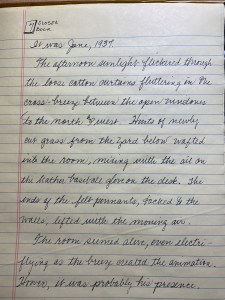 CLOSER
LOOK
It was June, 1937.
The afternoon sunlight flickered through
the loose cotton curtains fluttering in the
cross-breeze between the open windows
to the north & west. Hints of newly
cut grass from the yard below wafted
into the room, mixing with the oil on
the leather baseball glove on the desk. The
ends of the felt pennants, tacked to the
walls, lifted with the moving air.
The room seemed alive, even electri-
fying as the breeze created the animation.
However, it was probably his presence